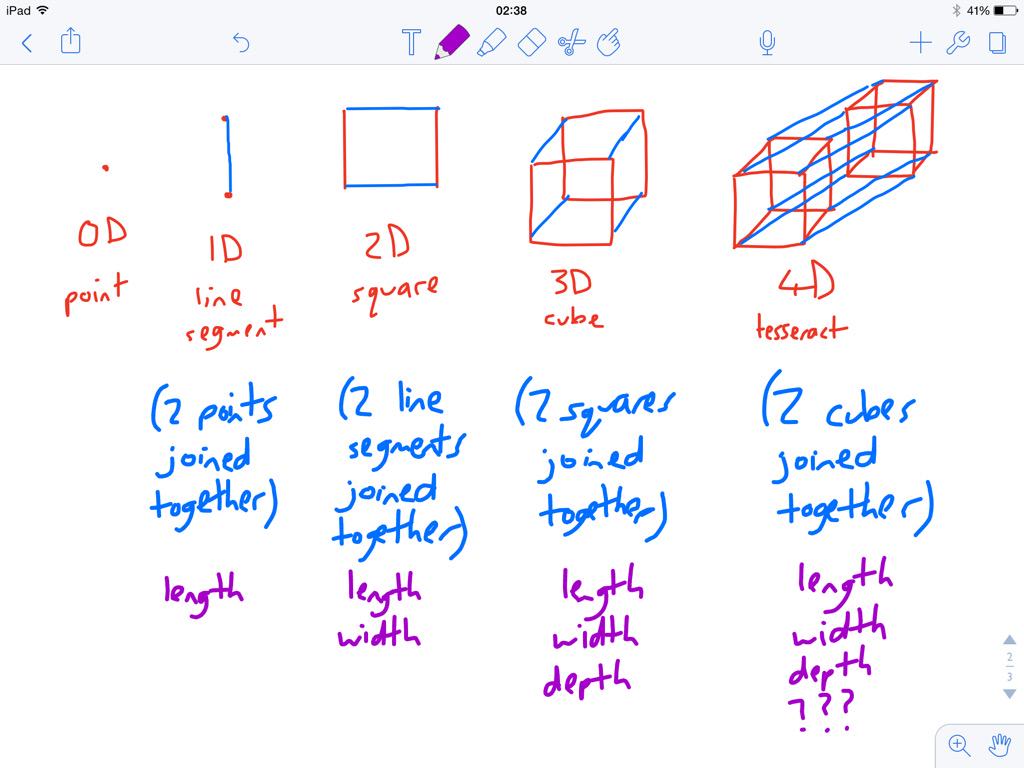 iPad
02:38
41%
T
0D
point
1D
line
segment
2D
square
3D
cube
4D
tesseract
(2 points
joined
together)
(2 line
segments
joined
together)
(2 squares
joined
together)
(2 cubes
joined
together)
length
length
width
length
width
depth
length
width
depth
???
2
3